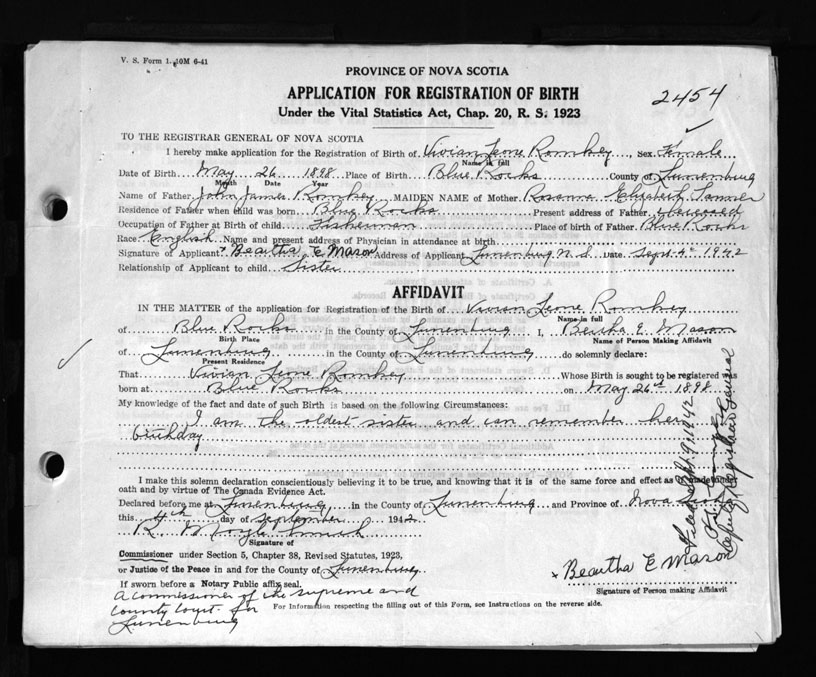 V. S. Form 1. 10M 6-41
PROVINCE OF NOVA SCOTIA
APPLICATION FOR REGISTRATION OF BIRTH
2454
Under the Vital Statistics Act, Chap. 20, R. S. 1923
TO THE REGISTRAR GENERAL OF NOVA SCOTIA
I hereby make application for the Registration of Birth of Vivian Leone Romkey, Sex Female
Name in full
Date of Birth May 26 1898 Place of Birth Blue Rocks County of Lunenburg
Month Date Year
Name of Father John James Romkey MAIDEN NAME of Mother Rosanna Elizabeth
Residence of Father when child was born Blue Rocks Present address of Father deceased
Occupation of Father at Birth of child Fisherman Place of birth of Father Blue Rocks
Race English Name and present address of Physician in attendance at birth
Signature of Applicant Beartha E Mason Address of Applicant Lunenburg N.S Date Sept 4th 1942
Relationship of Applicant to child Sister
AFFIDAVIT
IN THE MATTER of the application for Registration of the Birth of Vivian Leone Romkey
Name in full
of Blue Rocks in the County of Lunenburg I, Bertha E. Mason
Birth Place Name of Person Making Affidavit
of Lunenburg in the County of Lunenburg do solemnly declare:
Present Residence
That Vivian Leone Romkey Whose Birth is sought to be registered was
born at Blue Rocks on May 26th 1898
My knowledge of the fact and date of such Birth is based on the following Circumstances:
I am the oldest sister and can remember her
birthday
I make this solemn declaration conscientiously believing it to be true, and knowing that it is of the same force and effect as if made under
oath and by virtue of The Canada Evidence Act.
Declared before me at Lunenburg in the County of Lunenburg and Province of Nova
this 4th day of September 1942
R. Smith
Signature of
Commissioner under Section 5, Chapter 38, Revised Statutes, 1923,
or Justice of the Peace in and for the County of Lunenburg
Beartha E Mason
If sworn before a Notary Public affix seal.
Signature of Person making Affidavit
A Commissioner of the supreme and
county court for
Lunenburg
For Information respecting the filling out of this Form, see Instructions on the reverse side.
Sept. 9, 1942
Deputy Registrar General